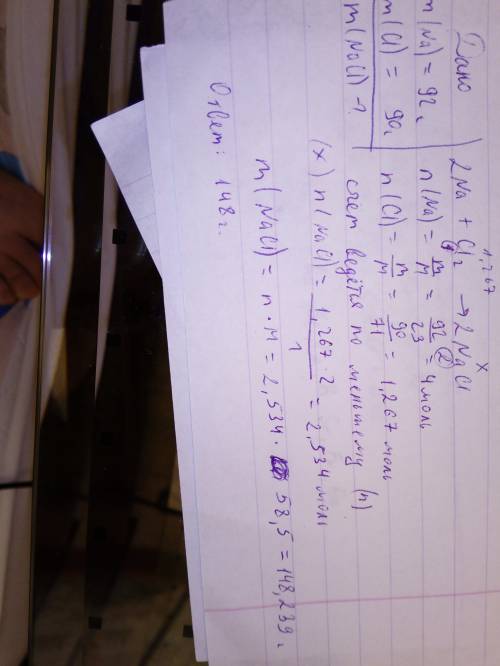 Дано
m(Na) = 92г
m(Cl) = 90г
m(NaCl) - ?
1,267 x
2Na + Cl2 → 2NaCl
n(Na) = m/M = 92/23 = 4 моль
n(Cl) = m/M = 90/71 = 1,267 моль
счет ведётся по меньшему (n)
(x) n(NaCl) = 1,267·2/1 = 2,534 моль
m(NaCl) = n·M = 2,534 · 58,5 = 148,239г
Ответ: 148г.